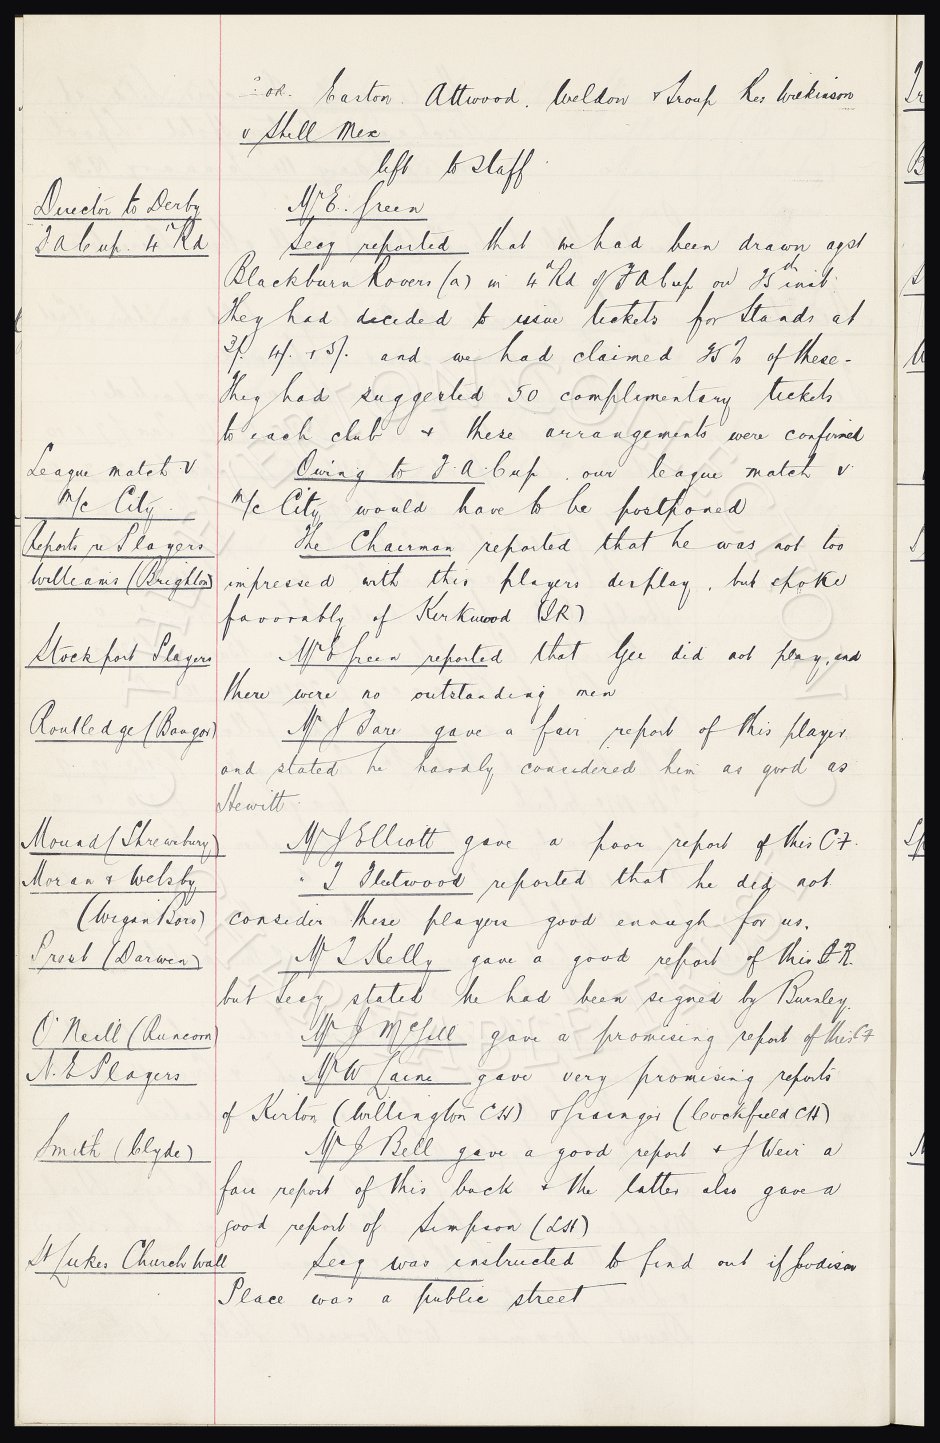 OR. Easton. Attwood. Weldon & Troup Res Wilkinson
v Shell Mex
left to staff.
Director to Derby Mr E. Green
F A Cup. 4th Rd Secy reported that we had been drawn agst
Blackburn Rovers (a) in 4th Rd of F A Cup on 25th inst.
They had decided to issue tickets for Stands at
3/. 4/. & 5/. and we had claimed 25% of these.
They had suggested 50 complimentary tickets
to each club & these arrangements were confirmed
League match v Owing to F.A. Cup our league match v
M/c City. M/c City would have to be postponed
Reports re Players The Chairman reported that he was not too
Williams (Brighton) impressed with this players display, but spoke
favorably of Kirkwood (IR)
Stockport Players Mr E Green reported that Gee did not play, and
there were no outstanding men
Routledge (Bangor) Mr J Fare gave a fair report of this player
and stated he hardly considered him as good as
Hewitt.
Mound (Shrewsbury) Mr J Elliott gave a poor report of this CF.
Moran & Welsby " T Fleetwood reported that he did not
(Wigan Boro) consider these players good enough for us.
Prest (Darwen) Mr T Kelly gave a good report of this IR.
but Secy stated he had been signed by Burnley.
O'Neill (Runcorn) Mr J McGill gave a promising report of this CF
N.E Players Mr W Laine gave very promising reports
of Kirton (Willington CH) & Grainger (Cockfield CH)
Smith (Clyde) Mr J Bell gave a good report & J Weir a
fair report of this back & the latter also gave a
good report of Simpson (LH)
St Lukes Church Wall Secy was instructed to find out if Goodison
Place was a public street